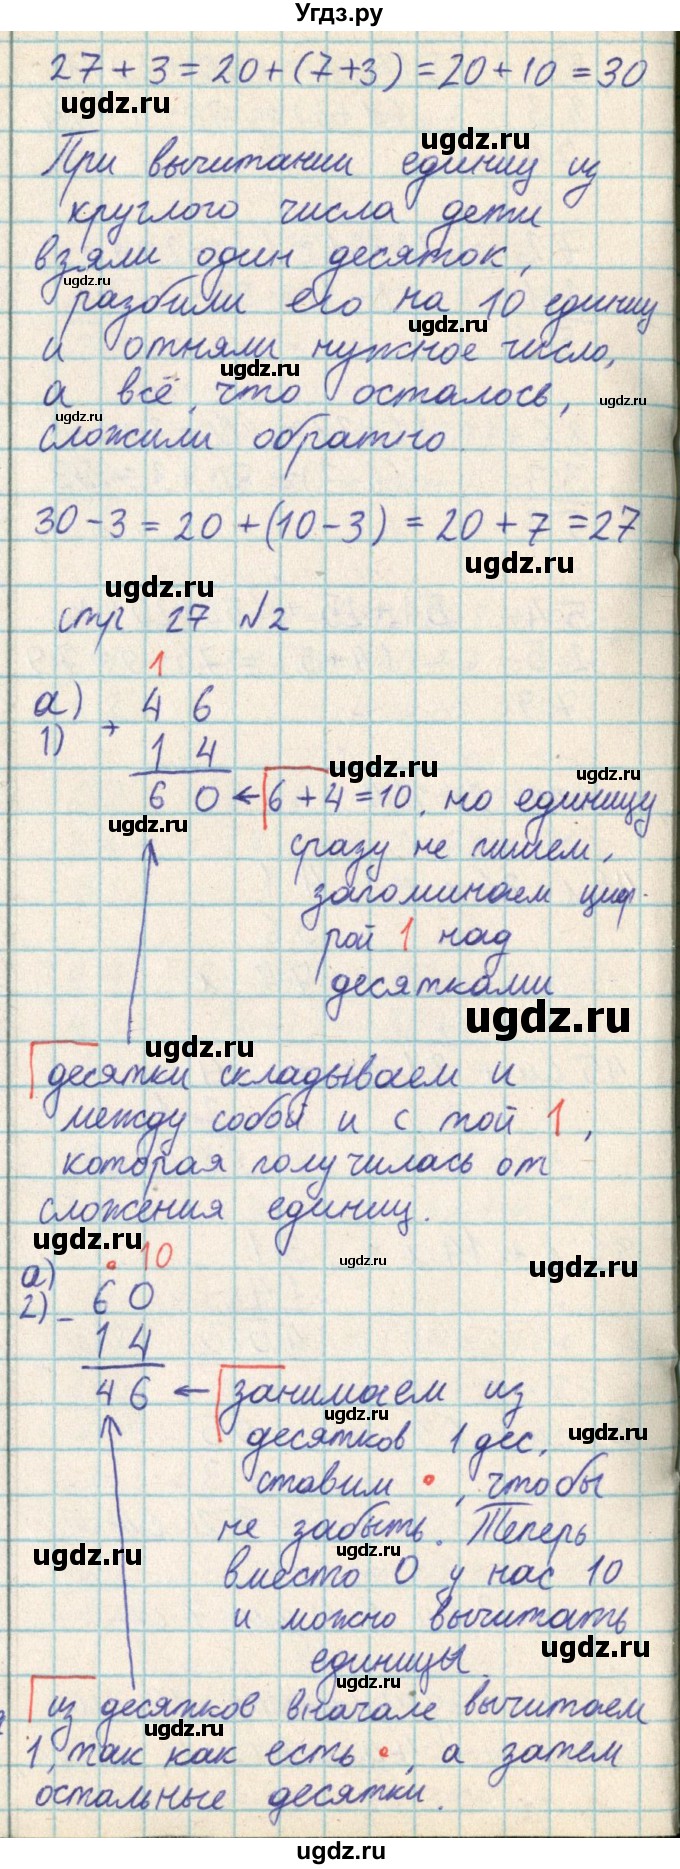 Угдз.ру
27 + 3 = 20 + (7+3) = 20 + 10 = 30
ugdz.ru
ugdz.ru
При вычитании единиц из
круглого числа дети
взяли один десяток,
ugdz.ru
разбили его на 10 единиц
ugdz.ru
и отняли нужное число,
ugdz.ru
а всё, что осталось,
ugdz.ru
ugdz.ru
сложили обратно.
30 - 3 = 20 + (10 - 3) = 20 + 7 = 27
ugdz.ru
ugdz.ru
стр 27 №2
1
а) 4 6
1) +
1 4
ugdz.ru
ugdz.ru
6 0 ← 6 + 4 = 10, но единицу
ugdz.ru
сразу не пишем,
запоминаем циф-
рой 1 над
десятками
ugdz.ru
ugdz.ru
десятки складываем и
между собой и с той 1,
которая получилась от
сложения единиц.
ugdz.ru
ugdz.ru
ugdz.ru
• 10
а) 6 0
2) -
1 4
4 6 ← занимаем из
ugdz.ru
десятков 1 дес.
ugdz.ru
ставим •, чтобы
не забыть. Теперь
ugdz.ru
ugdz.ru
вместо 0 у нас 10
и можно вычитать
ugdz.ru
единицы.
ugdz.ru
из десятков вначале вычитаем
ugdz.ru
1, так как есть •, а затем
остальные десятки.
ugdz.ru